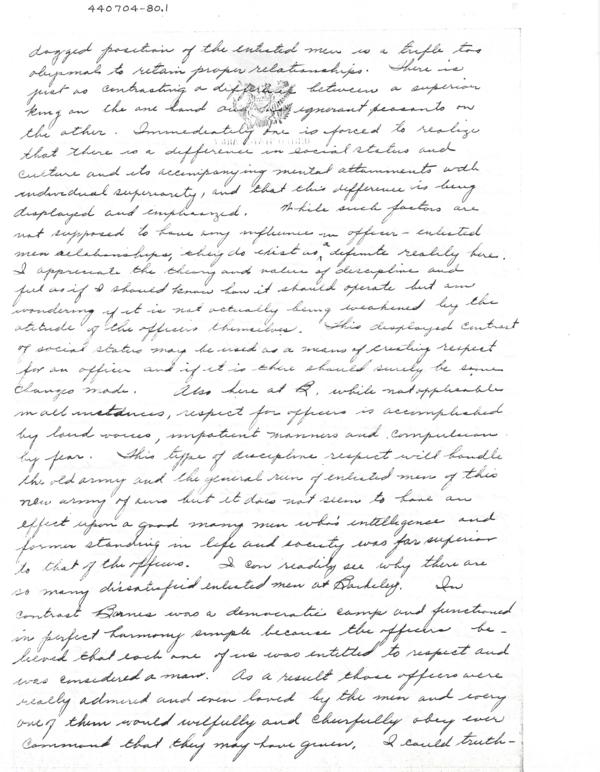 440704-80.1
dogged position of the enlisted men is a trifle too
abysmal to retain proper relationships. There is
just as contrasting a difference between a superior
king on the one hand and ignorant peasants on
the other. Immediately one is forced to realize
that there is a difference in social status and
culture and its accompanying mental attainments with
individual superiority, and that this difference is being
displayed and emphasized. While such factors are
not supposed to have any influence in officer-enlisted
men relationships, they do exist as a definite reality here.
I appreciate the theory and value of discipline and
feel as if I should know how it should operate but am
wondering if it is not actually being weakened by the
atitude of the officers themselves. This displayed contrast
of social status may be used as a means of creating respect
for an officer and if it is there should surely be some
changes made. Also here at B. while not applicable
in all instances, respect for officers is accomplished
by loud voices, impatient manners and compulsion
by fear. This type of discipline respect will handle
the old army and the general run of enlisted men of this
new army of ours but it does not seem to have an
effect upon a good many men who's intelligence and
former standing in life and society was far superior
to that of the officers. I can readily see why there are
so many dissatisfied enlisted men at Barkeley. In
contrast Barnes was a democratic camp and functioned
in perfect harmony simple because the officers be-
lieved that each one of us was entitled to respect and
was considered a man. As a result those officers were
really admired and even loved by the men and every
one of them would wilfully and cheerfully obey ever
command that they may have given. I could truth-